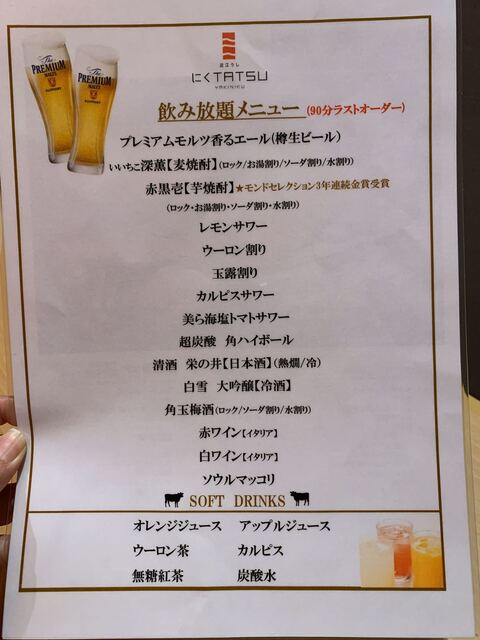 The
PREMIUM
MALT'S
SUNTORY
The
PREMIUM
MALT'S
SUNTORY
近江うし
にくTATSU
YAKINIKU
飲み放題メニュー(90分ラストオーダー)
プレミアムモルツ香るエール(樽生ビール)
いいちこ深薫【麦焼酎】(ロック/お湯割り/ソーダ割り/水割り)
赤黒壱【芋焼酎】★モンドセレクション3年連続金賞受賞
(ロック・お湯割り・ソーダ割り・水割り)
レモンサワー
ウーロン割り
玉露割り
カルピスサワー
美ら海塩トマトサワー
超炭酸 角ハイボール
清酒 栄の井【日本酒】(熱燗/冷)
白雪 大吟醸【冷酒】
角玉梅酒(ロック/ソーダ割り/水割り)
赤ワイン【イタリア】
白ワイン【イタリア】
ソウルマッコリ
SOFT DRINKS
オレンジジュース アップルジュース
ウーロン茶 カルピス
無糖紅茶 炭酸水